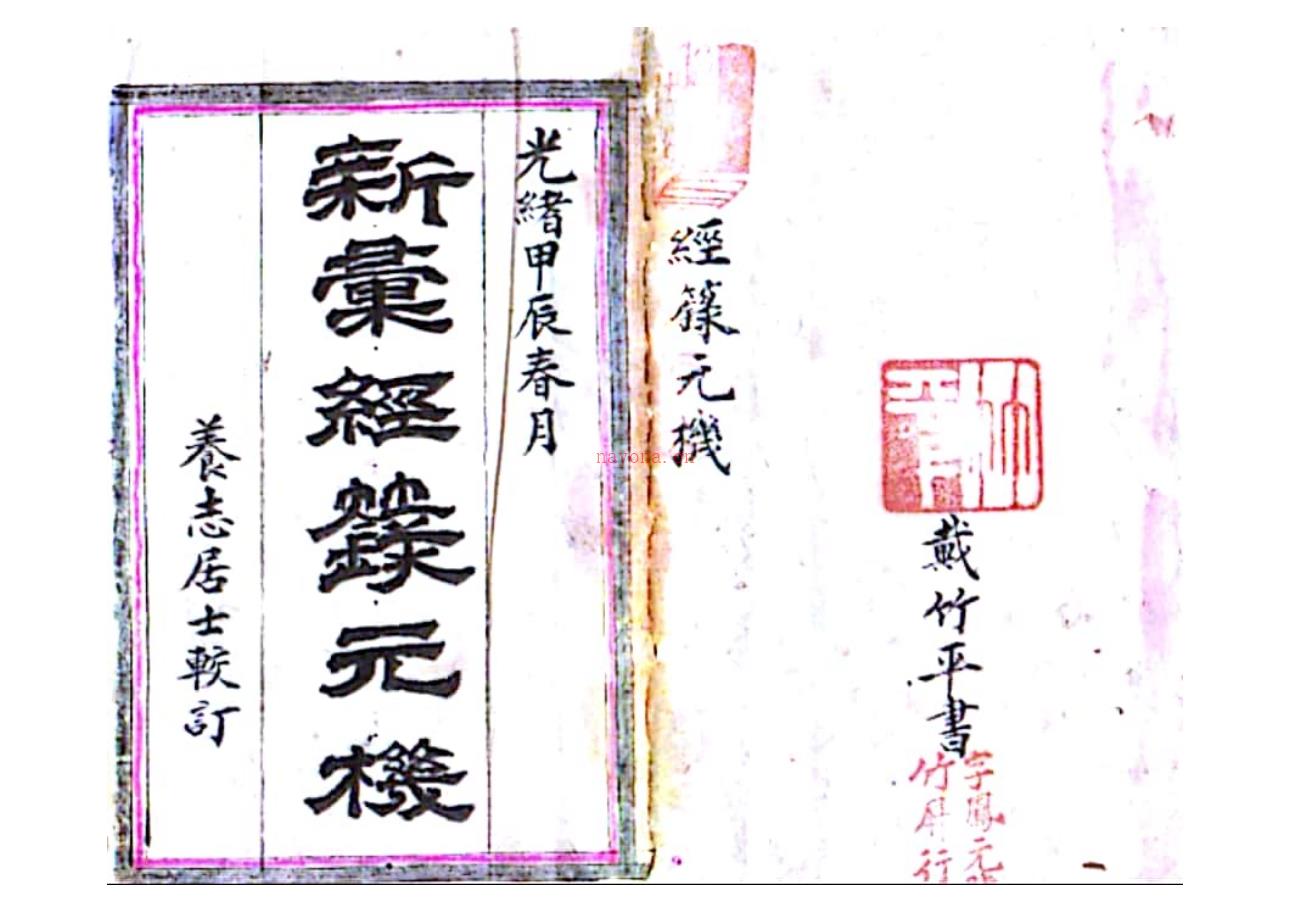 戴竹平書
字鳳元
竹屏行
經箓元機
光緒甲辰春月
新彙經籙元機
養志居士較訂
nayona.cn